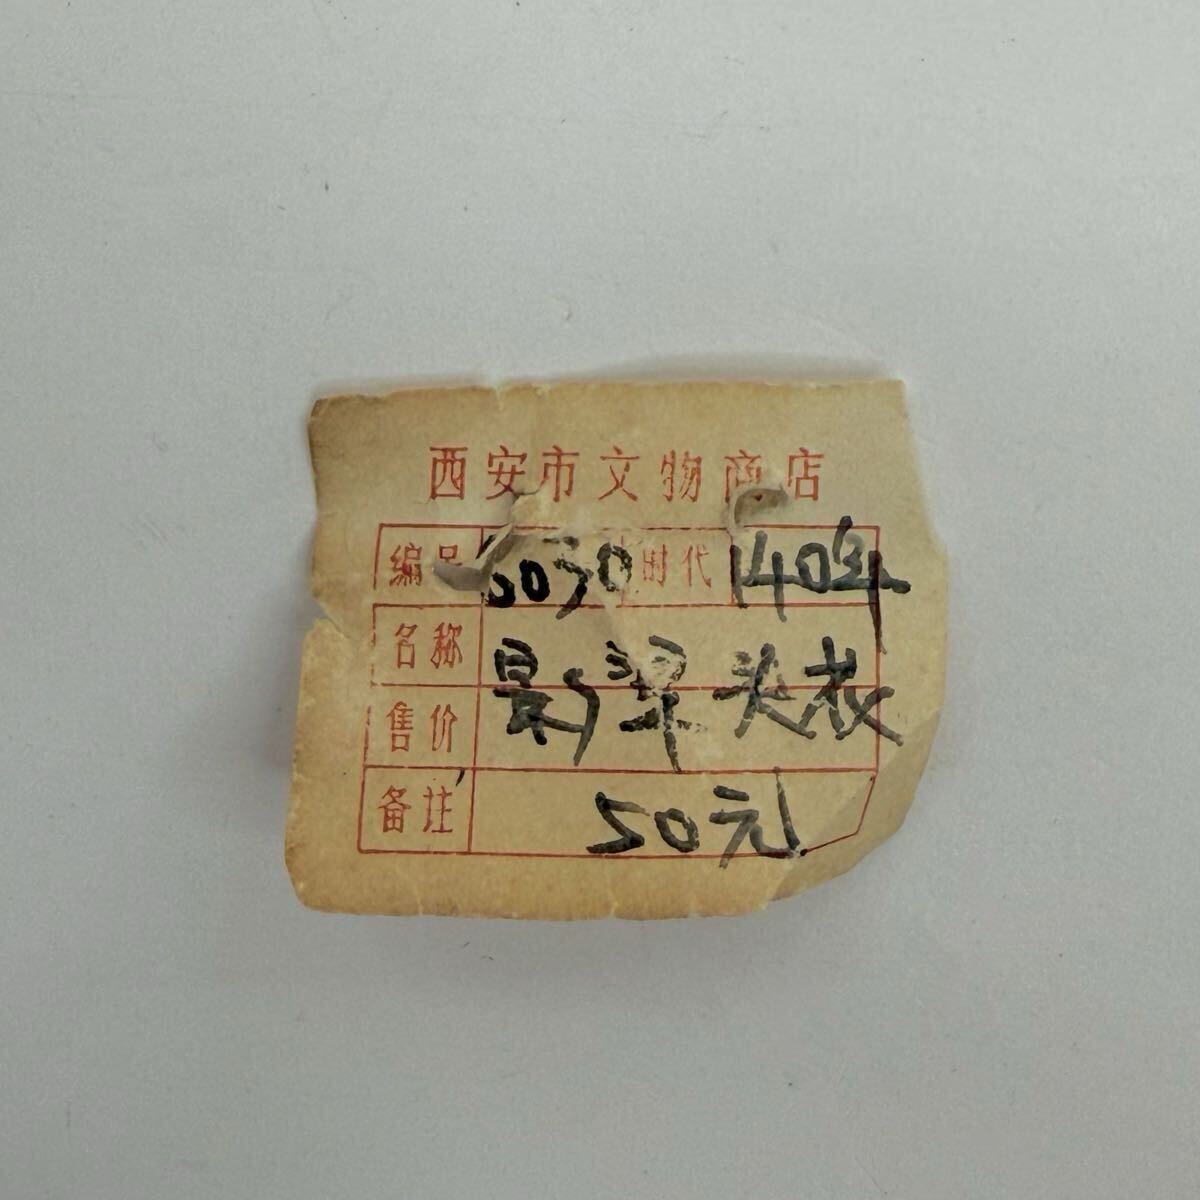 西安市文物商店
编号 6030 时代 140年
名称
售价
备注 50元